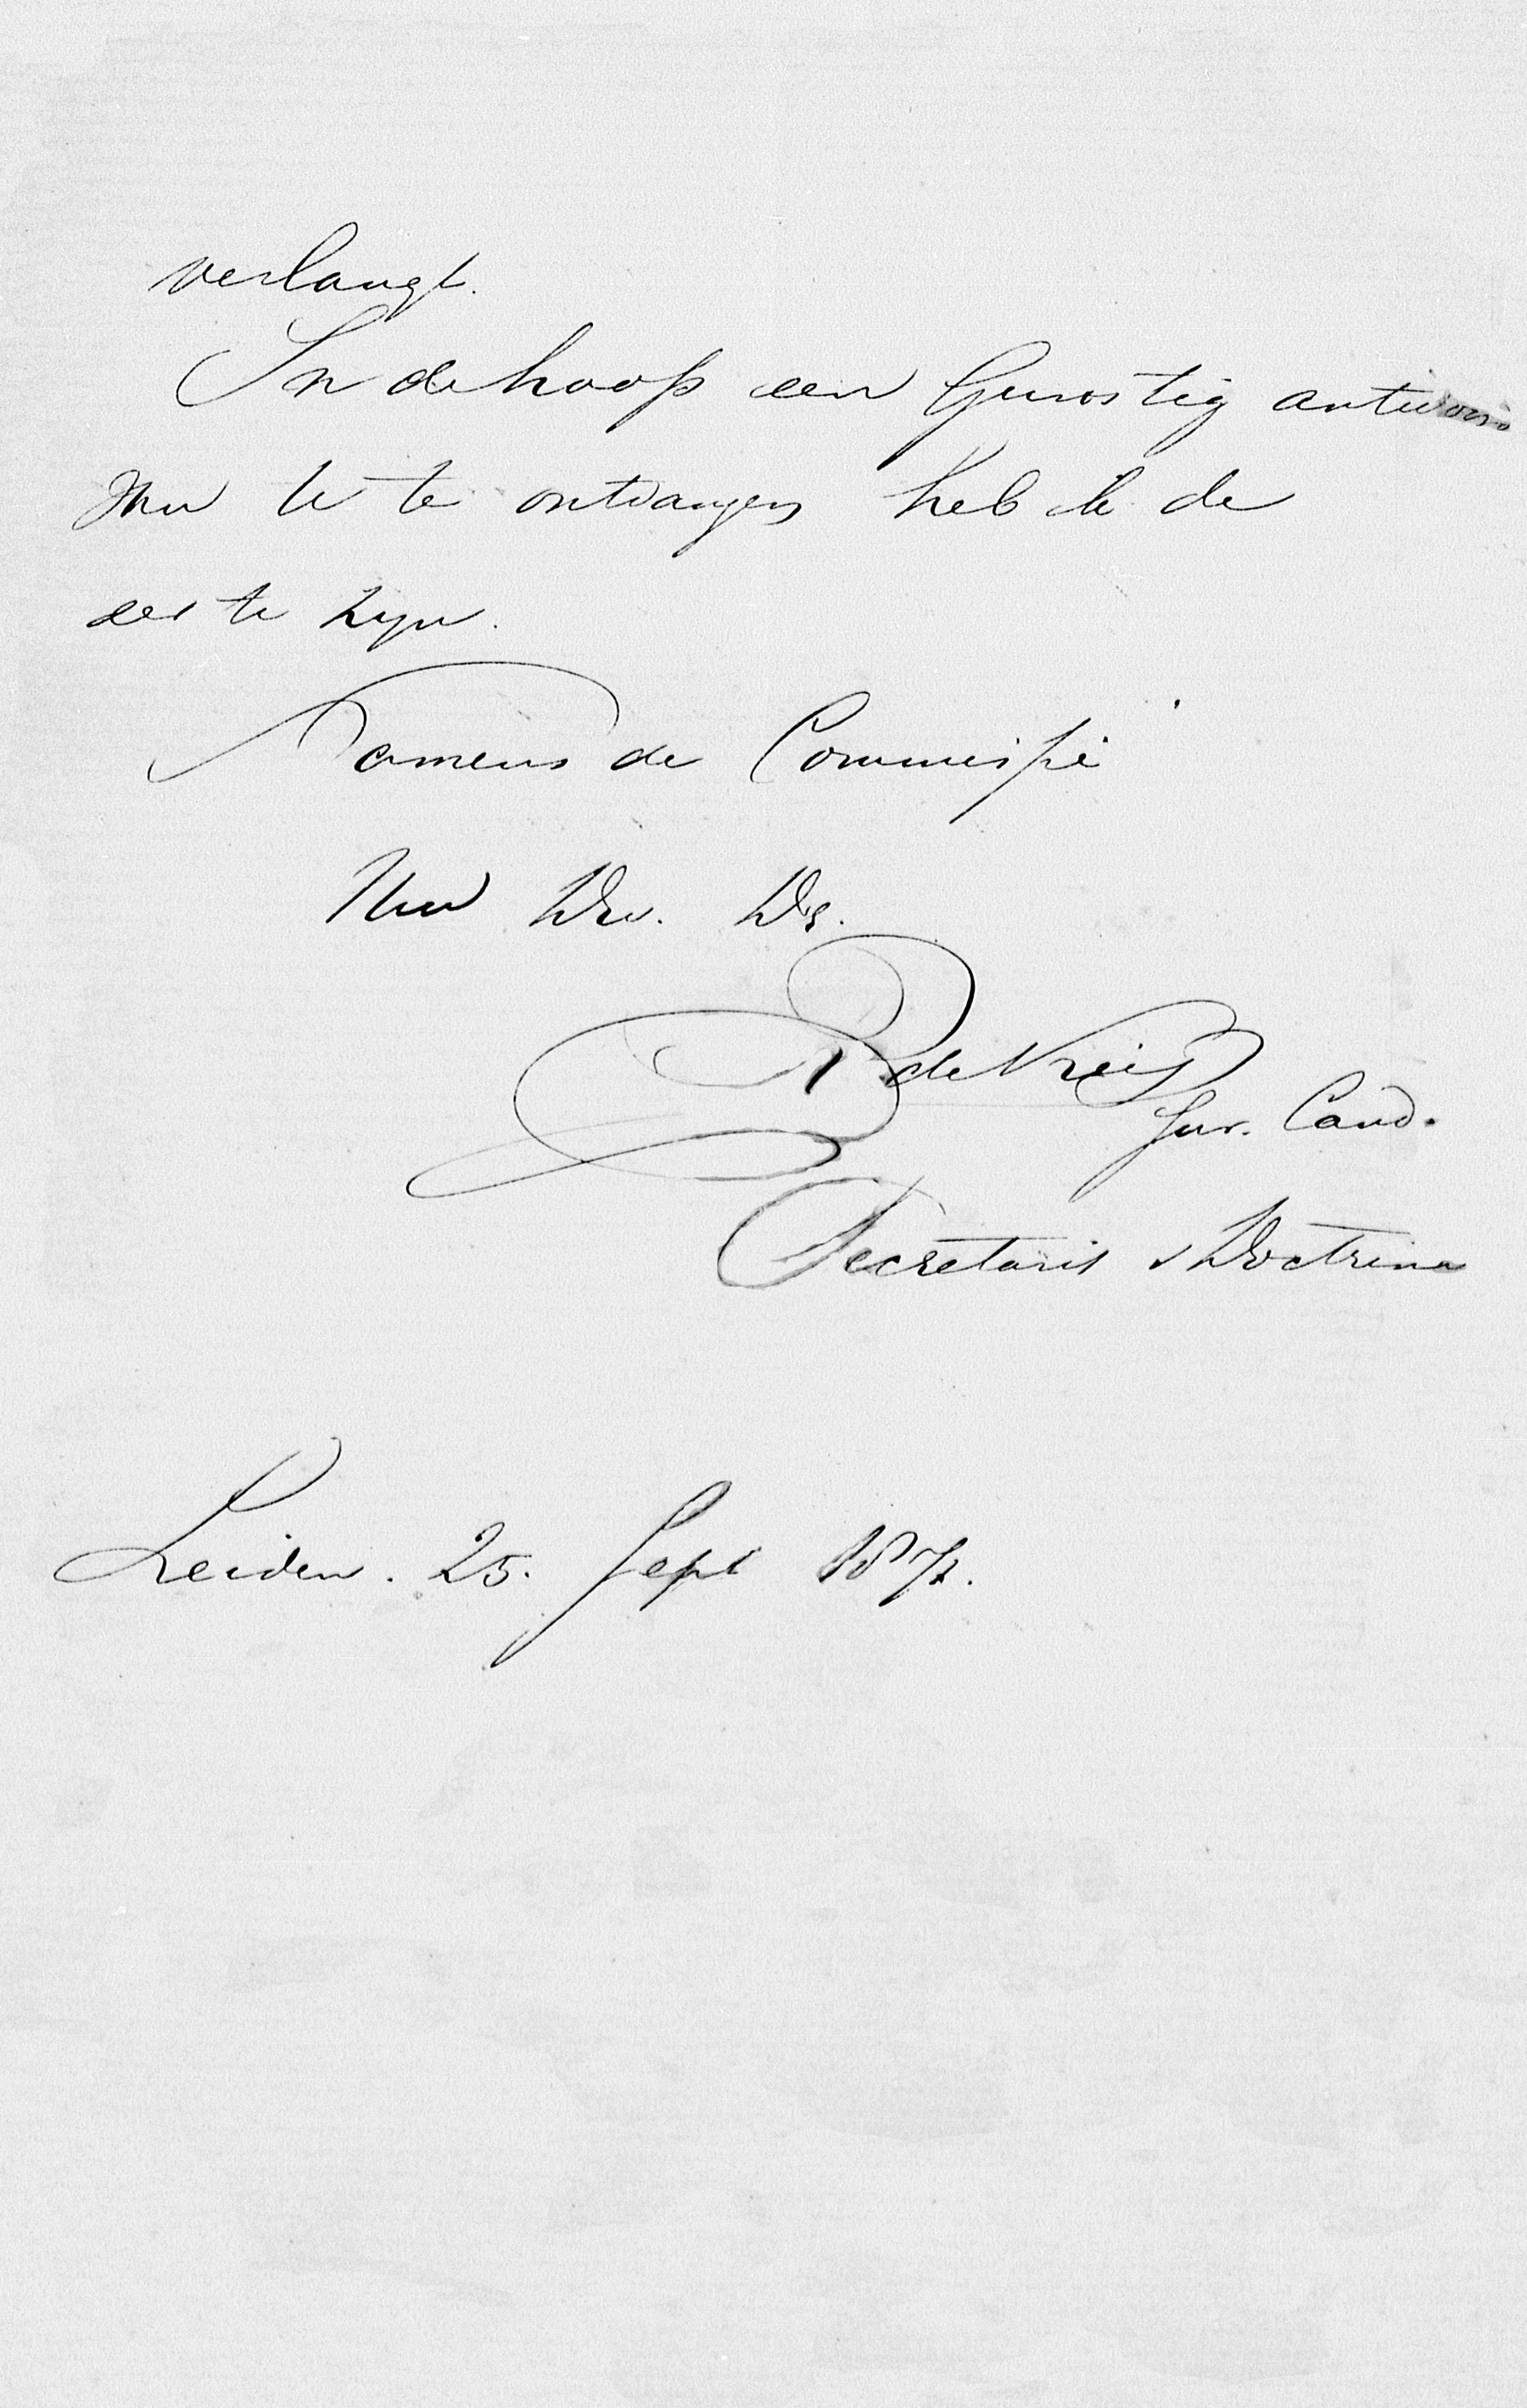 verlangt.
In de hoop een Gunstig antwoord
van U te ontvangen heb ik de
eer te zyn.
Namens de Commissie
Uw Dw. Dr.
de Vries
Jur. Cand.
Secretaris v Doctrina
Leiden. 25. Sept 187